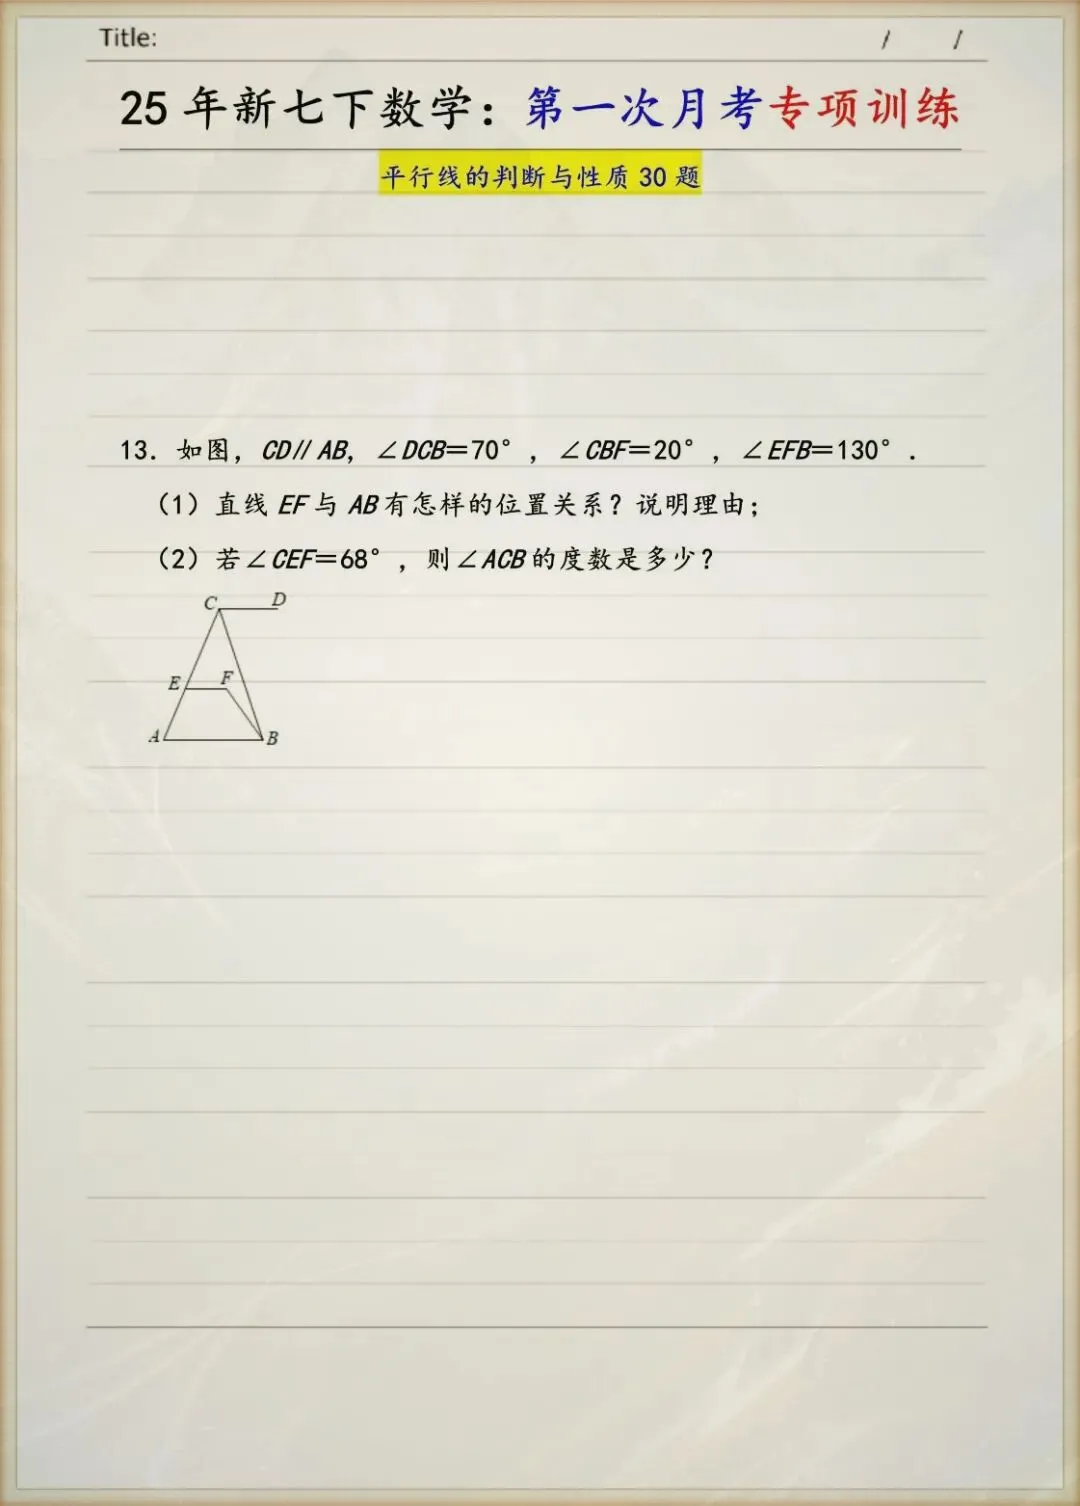 Title: / /
25年新七下数学：第一次月考专项训练
平行线的判断与性质30题
13．如图，CD∥AB，∠DCB＝70°，∠CBF＝20°，∠EFB＝130°．
（1）直线EF与AB有怎样的位置关系？说明理由；
（2）若∠CEF＝68°，则∠ACB的度数是多少？
C D
E F
A B